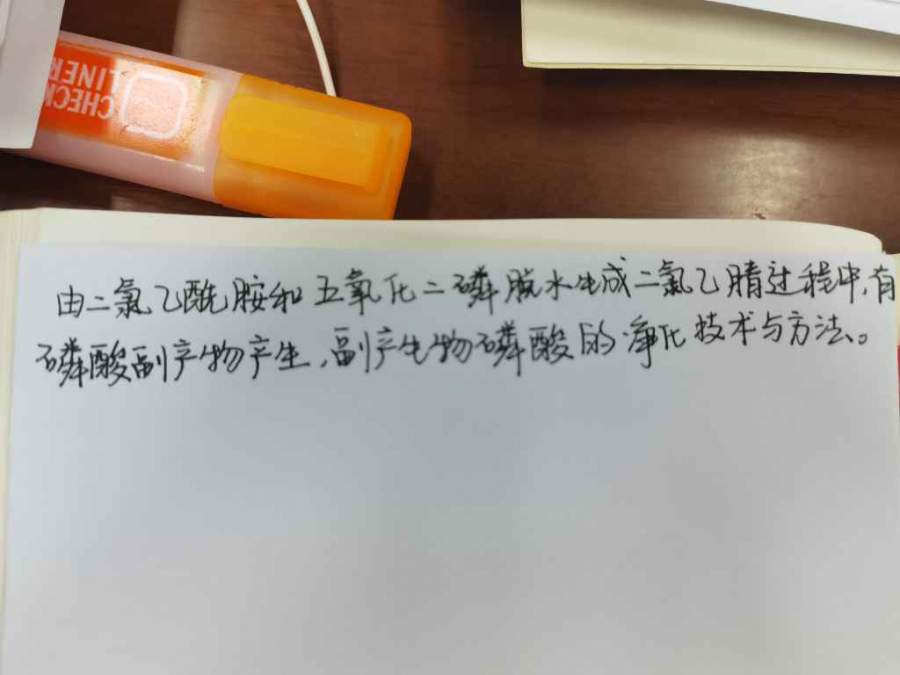 CHECK
LINER
由二氯乙酰胺和五氧化二磷脱水生成二氯乙腈过程中,有
磷酸副产物产生,副产生物磷酸的净化技术与方法。